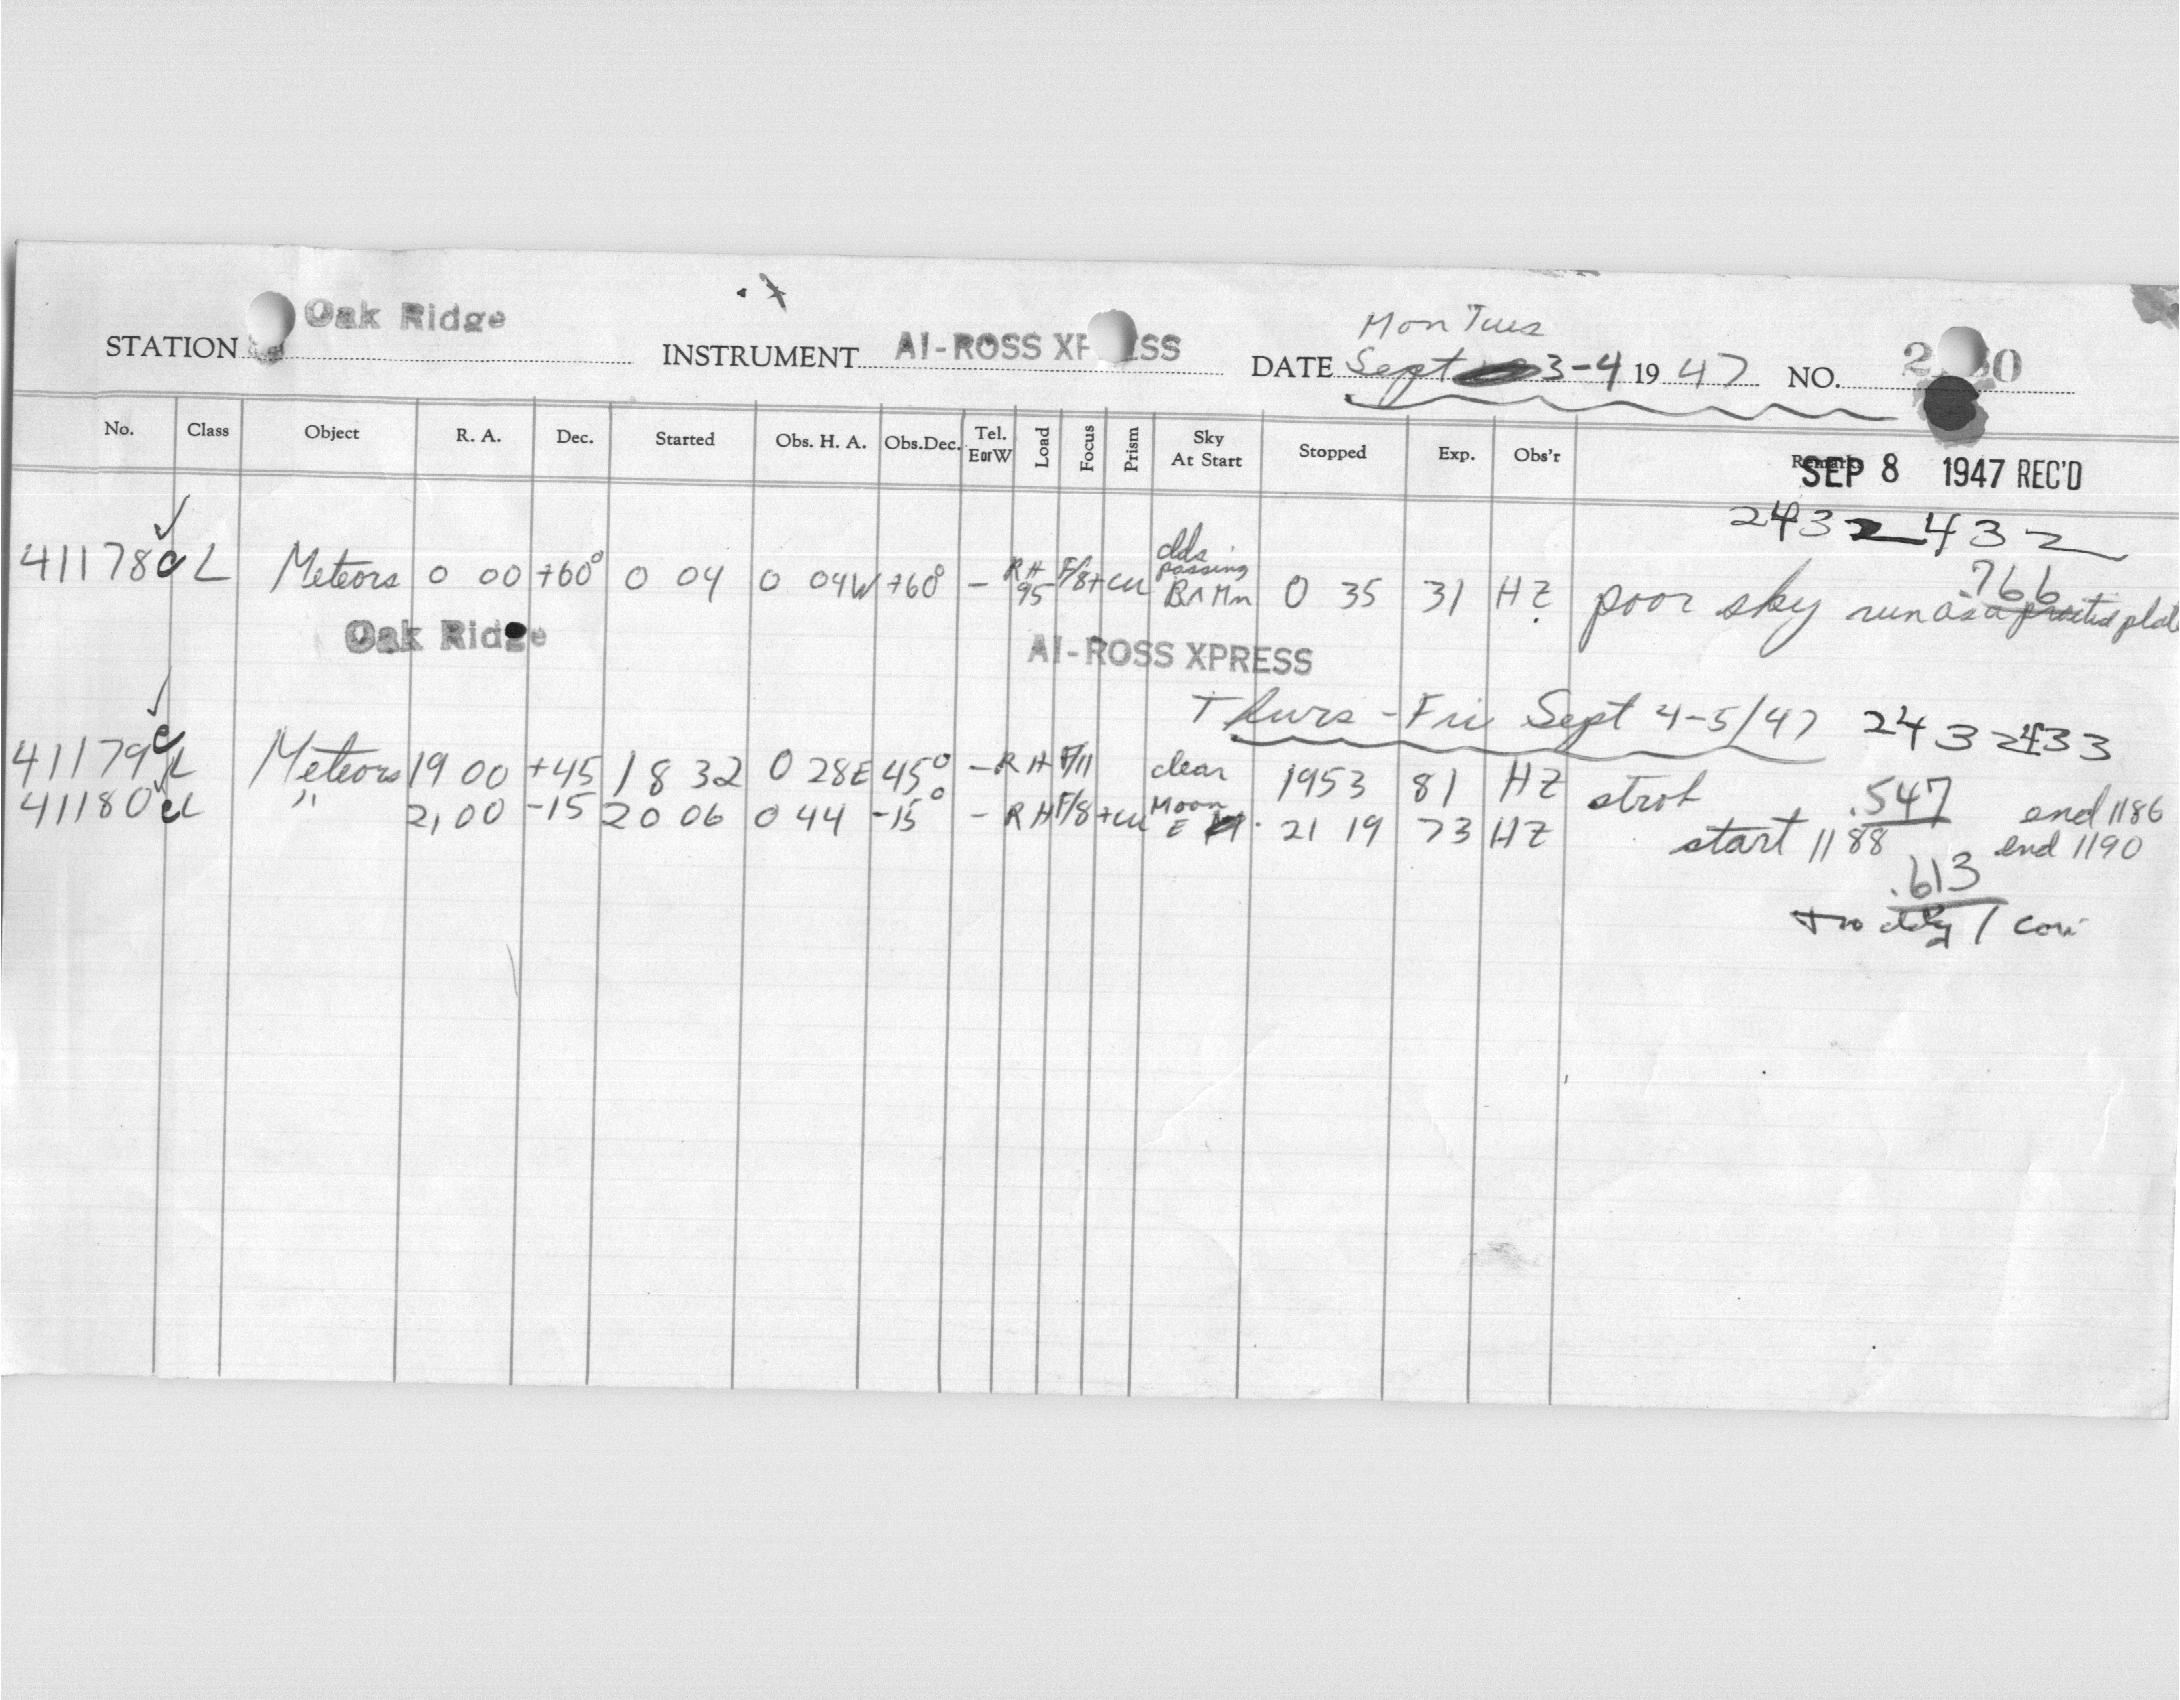 Mon Tues
STATION Oak Ridge INSTRUMENT AI-ROSS XPRESS DATE Sept 3-4 1947 NO.
No. Class Object R. A. Dec. Started Obs. H. A. Obs.Dec. Tel. E or W Load Focus Prism Sky At Start Stopped Exp. Obs'r Remarks
SEP 8 1947 REC'D
2432 432
.766
41178 c L Meteors 0 00 +60° 0 04 0 04W +60° - RH 95 F/8 +cu clds passing Br Mn 0 35 31 HZ poor sky run as a plate
Oak Ridge AI-ROSS XPRESS
Thurs - Fri Sept 4-5/47 2432433
41179 c L Meteors 19 00 +45 18 32 0 28E 45° - RH F/11 clear 1953 81 HZ strob .547 end 1186
41180 c L " 21 00 -15 20 06 0 44 -15° - RH F/8 +cu Moon E 21 19 73 HZ start 1188 end 1190
.613